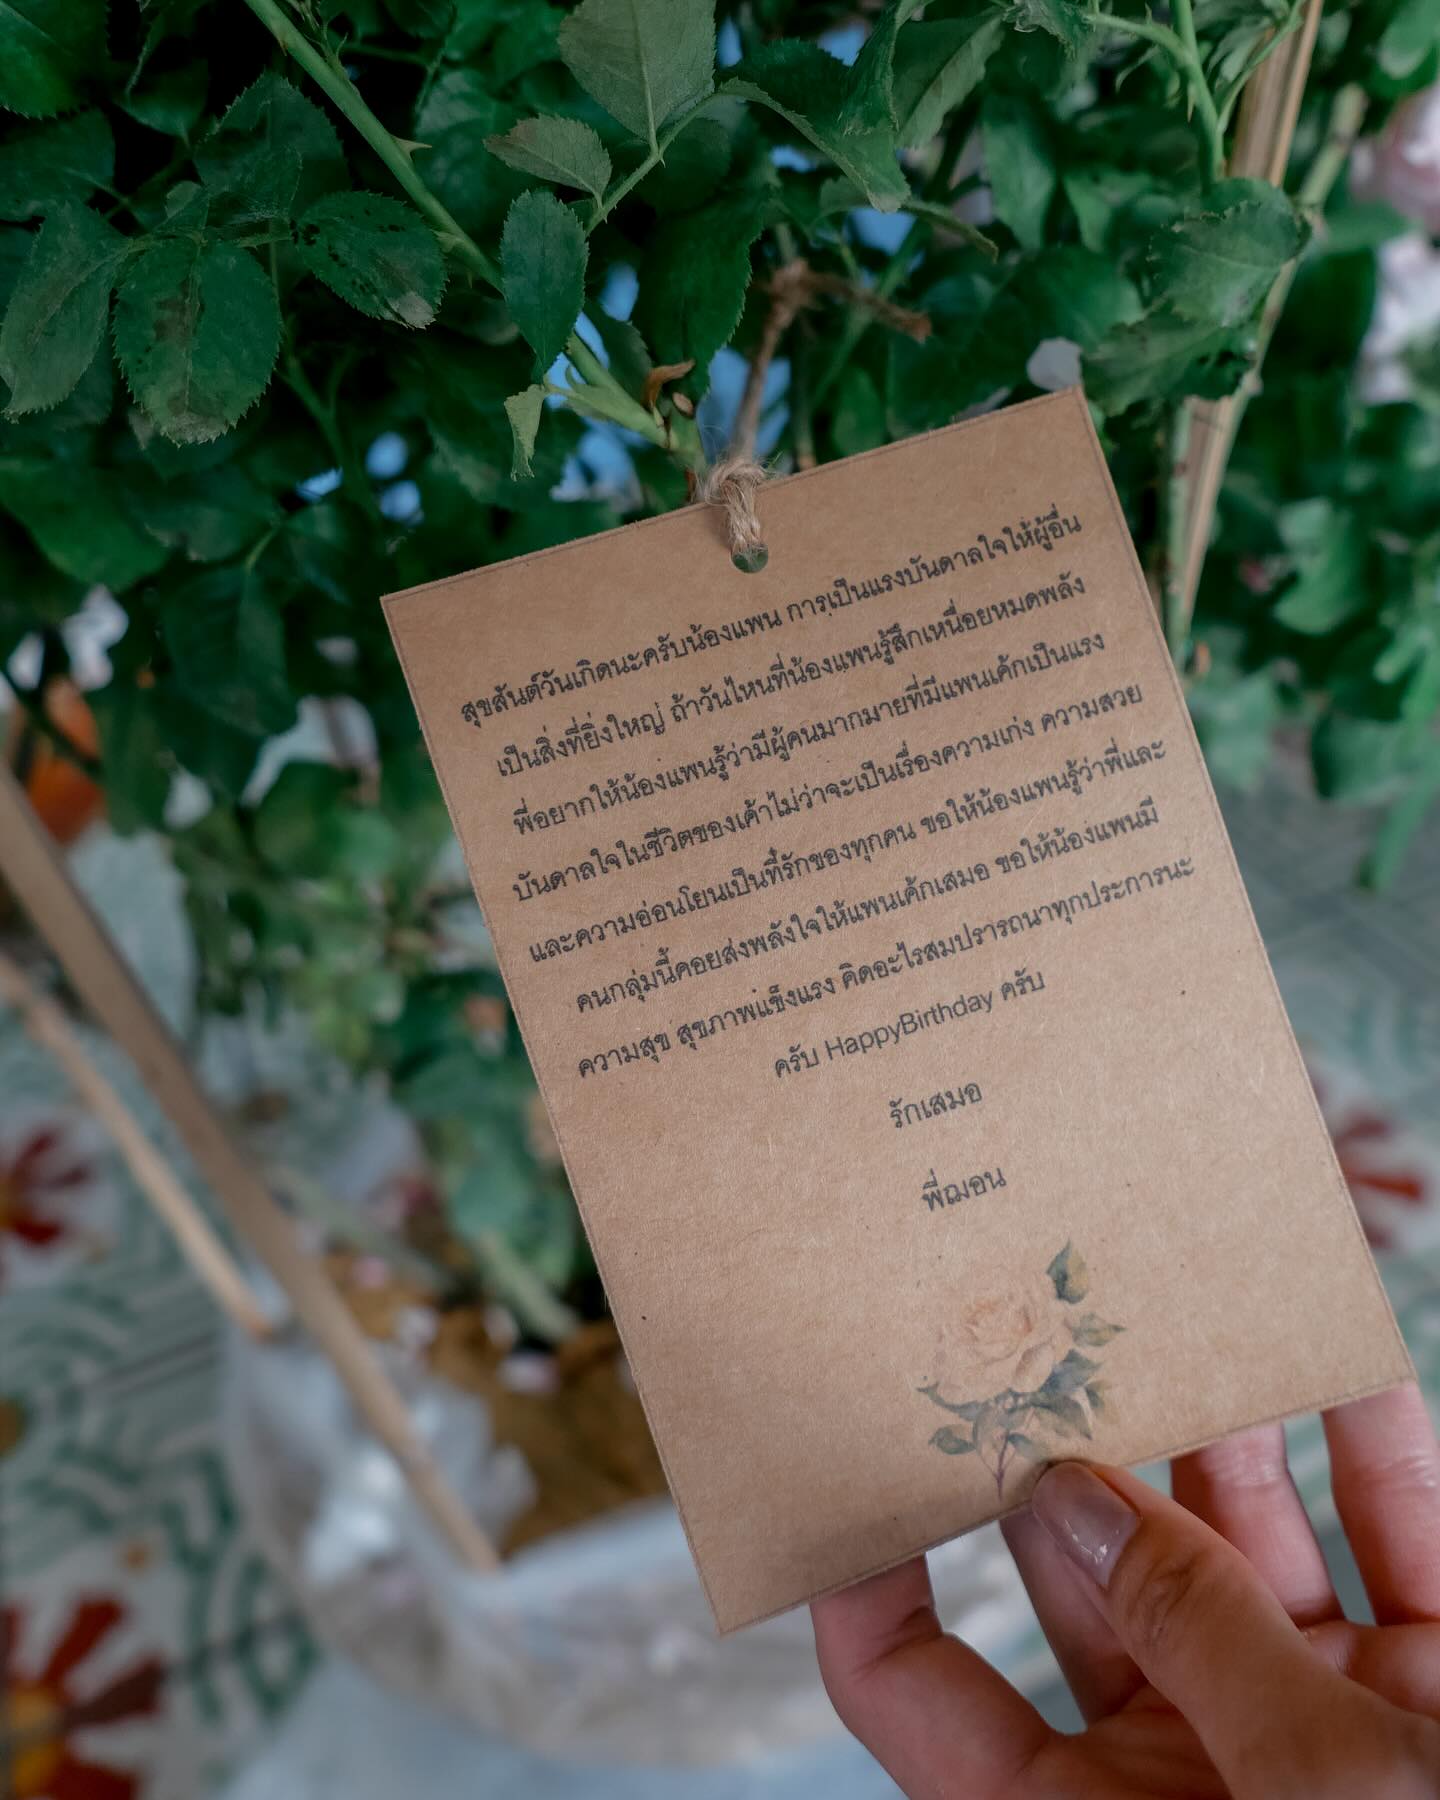 สุขสันต์วันเกิดนะครับน้องแพน การเป็นแรงบันดาลใจให้ผู้อื่น
เป็นสิ่งที่ยิ่งใหญ่ ถ้าวันไหนที่น้องแพนรู้สึกเหนื่อยหมดพลัง
พี่อยากให้น้องแพนรู้ว่ามีผู้คนมากมายที่มีแพนเค้กเป็นแรง
บันดาลใจในชีวิตของเค้าไม่ว่าจะเป็นเรื่องความเก่ง ความสวย
และความอ่อนโยนเป็นที่รักของทุกคน ขอให้น้องแพนรู้ว่าพี่และ
คนกลุ่มนี้คอยส่งพลังใจให้แพนเค้กเสมอ ขอให้น้องแพนมี
ความสุข สุขภาพแข็งแรง คิดอะไรสมปรารถนาทุกประการนะ
ครับ HappyBirthday ครับ
รักเสมอ
พี่ฌอน